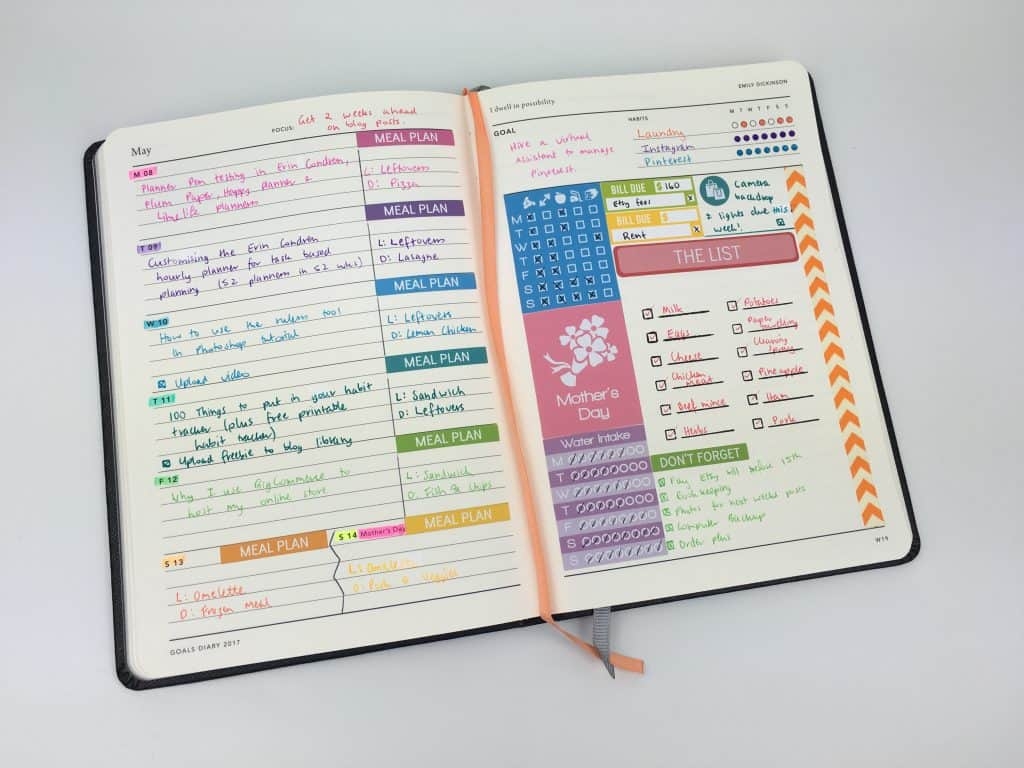 FOCUS: Get 2 weeks ahead
on blog posts.
May
M 08
Planner Pen testing in Erin Condren,
Plum Paper, Happy planner &
Limelife planners
MEAL PLAN
L: Leftovers
D: Pizza
T 09
Customising the Erin Condren
hourly planner for task based
planning (52 planners in 52 wks)
MEAL PLAN
L: Leftovers
D: Lasagne
W 10
How to use the rulers tool
in Photoshop tutorial
Upload video
MEAL PLAN
L: Leftovers
D: Lemon Chicken
T 11
100 Things to put in your habit
tracker (plus free printable
habit tracker)
Upload freebie to blog library
MEAL PLAN
L: Sandwich
D: Leftovers
F 12
Why I use BigCommerce to
host my online store
MEAL PLAN
L: Sandwich
D: Fish & Chips
S 13
MEAL PLAN
L: Omelette
D: Frozen Meal
S 14 Mother's Day
MEAL PLAN
L: Omelette
D: Pork & Veggies
GOALS DIARY 2017
I dwell in possibility
EMILY DICKINSON
GOAL
Hire a virtual
assistant to manage
Pinterest.
HABITS
M T W T F S S
Laundry
Instagram
Pinterest
M
T
W
T
F
S
S
BILL DUE $ 160
Etsy fees x
BILL DUE $
Rent x
Camera
backdrop
& lights due this
week!
THE LIST
Milk
Eggs
Cheese
Chicken
meat
Beef mince
Herbs
Potatoes
Paper
towelling
Cleaning
spray
Pineapple
Ham
Pork
Mother's
Day
Water Intake
M
T
W
T
F
S
S
DON'T FORGET
Pay Etsy bill before 15th
Bookkeeping
Photos for next weeks posts
Computer Backup
Order plus
W19